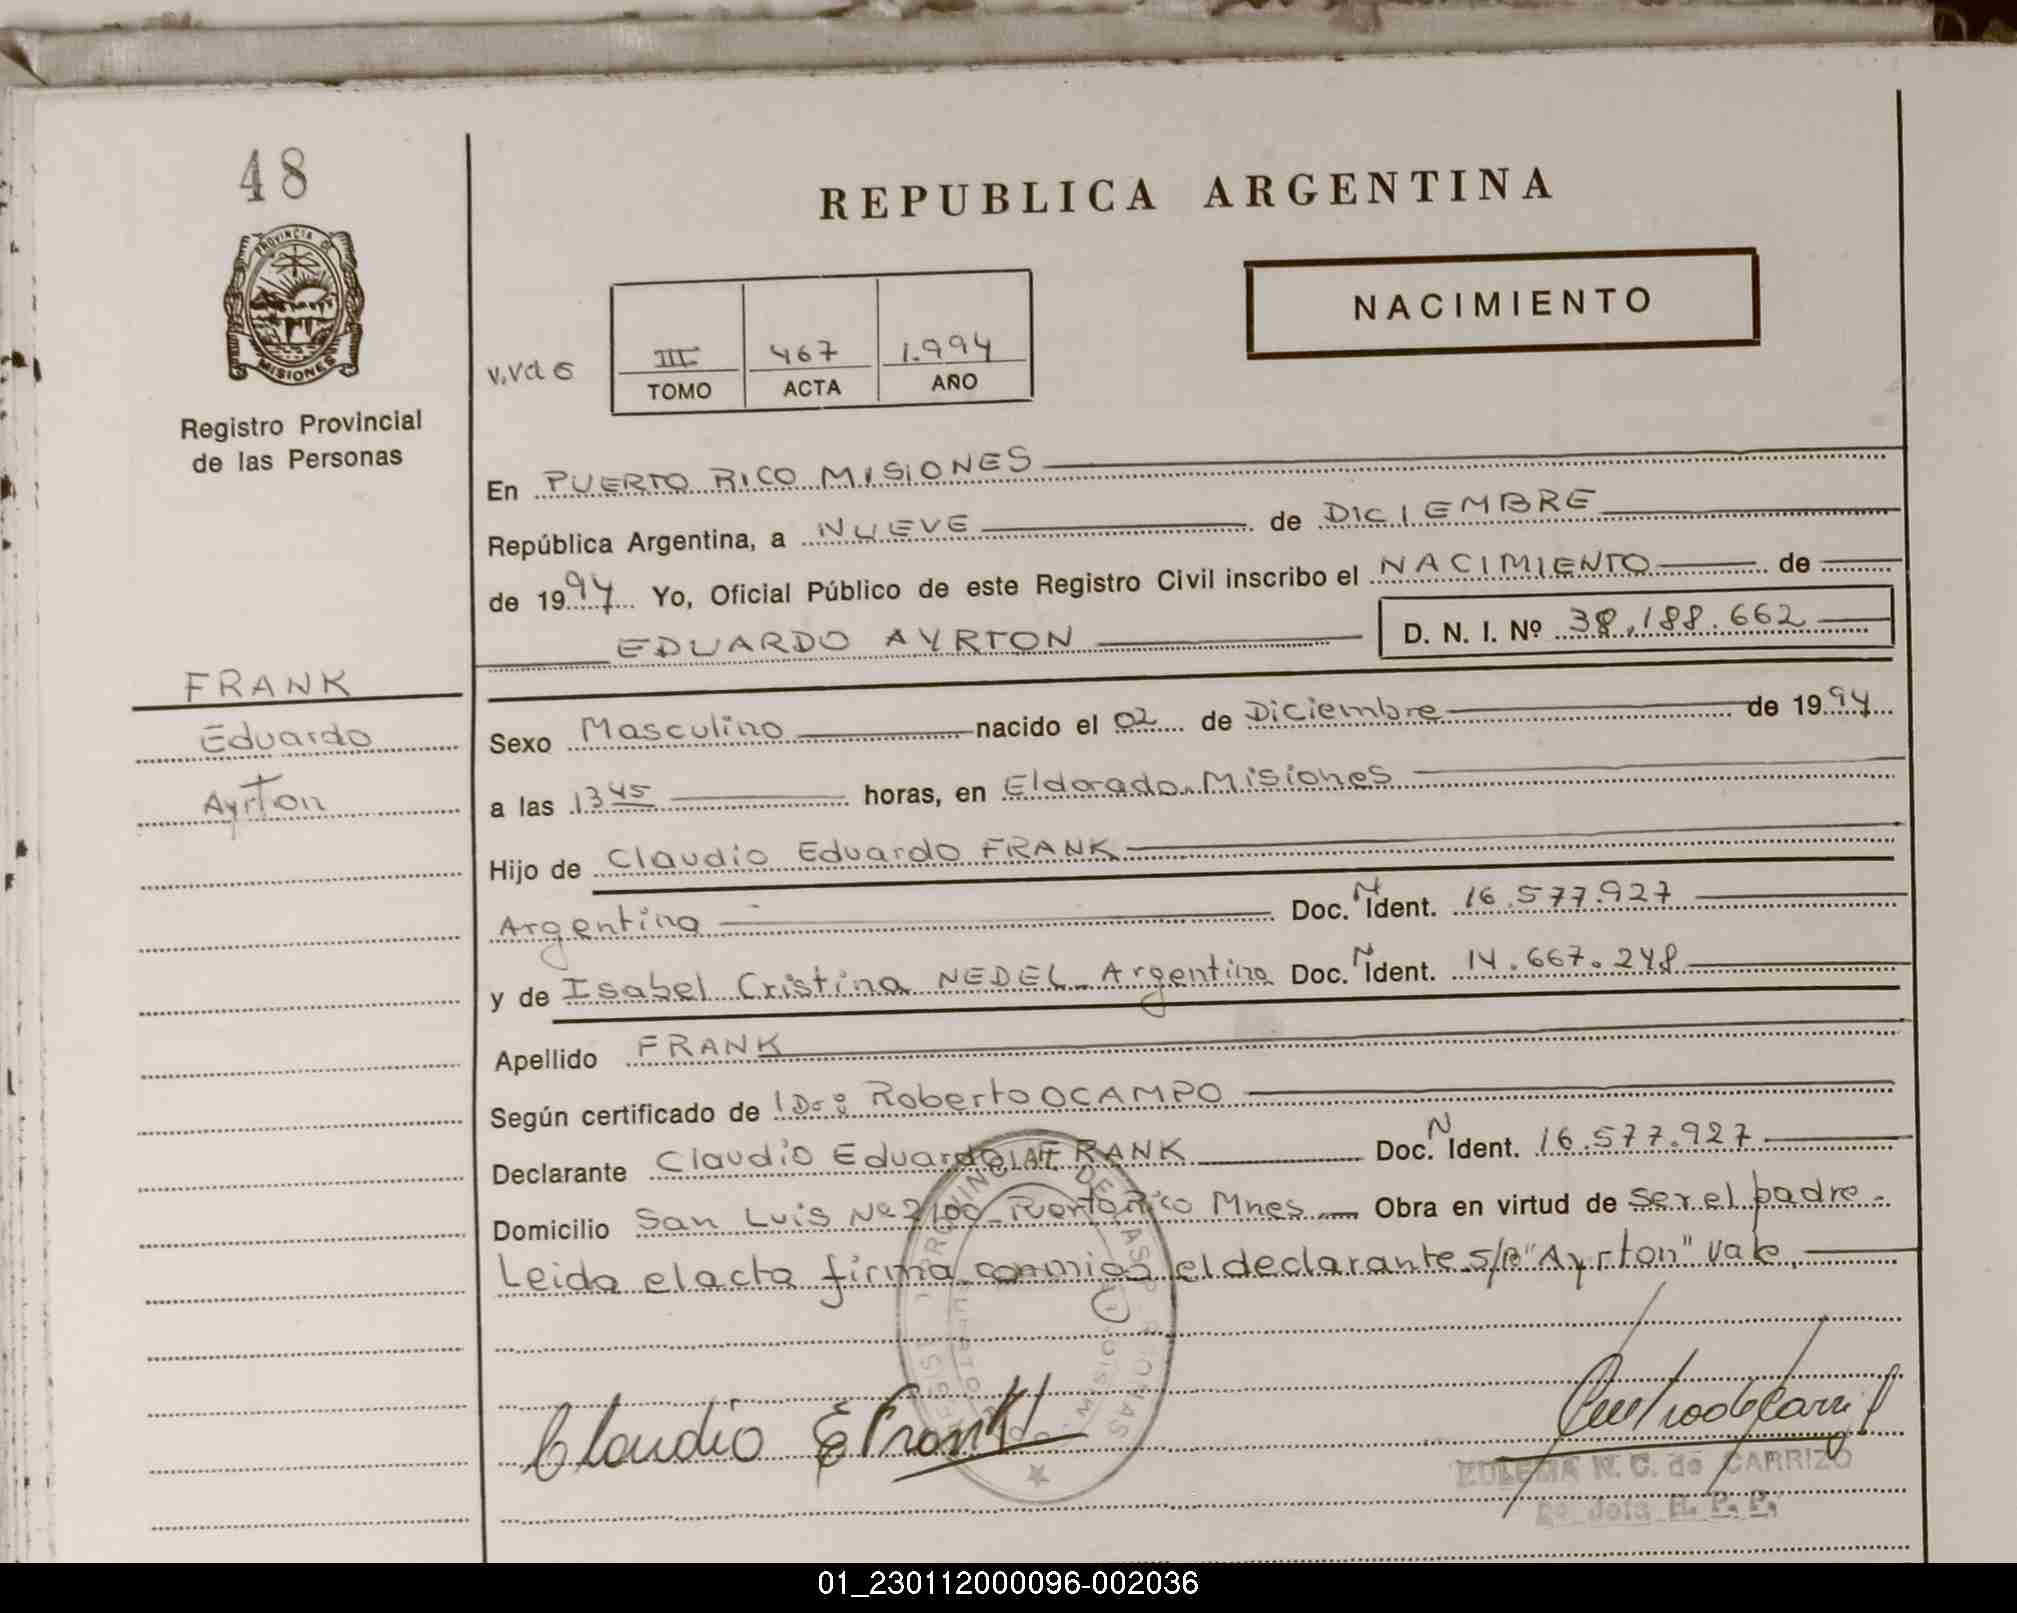 48
REPUBLICA ARGENTINA
PROVINCIA DE
MISIONES
NACIMIENTO
III 467 1.994
TOMO ACTA AÑO
Registro Provincial
de las Personas
En PUERTO RICO MISIONES
República Argentina, a NUEVE de DICIEMBRE
de 1994 Yo, Oficial Público de este Registro Civil inscribo el NACIMIENTO de
EDUARDO AYRTON D. N. I. Nº 38.188.662
FRANK
Eduardo
Ayrton
Sexo Masculino nacido el 02 de Diciembre de 1994
a las 13 45 horas, en Eldorado. Misiones
Hijo de Claudio Eduardo FRANK
Argentina Doc. N Ident. 16.577.927
y de Isabel Cristina NEDEL Argentina Doc. N Ident. 14.667.248
Apellido FRANK
Según certificado de Dr: Roberto OCAMPO
Declarante Claudio Eduardo FRANK Doc. N Ident. 16.577.927
Domicilio San Luis Nº 2100 Puerto Rico Mnes Obra en virtud de ser el padre.-
Leida el acta firma conmigo el declarante. s/r "Ayrton" Vale.
Claudio E Frank
N. C. de CARRIZO
01_230112000096-002036